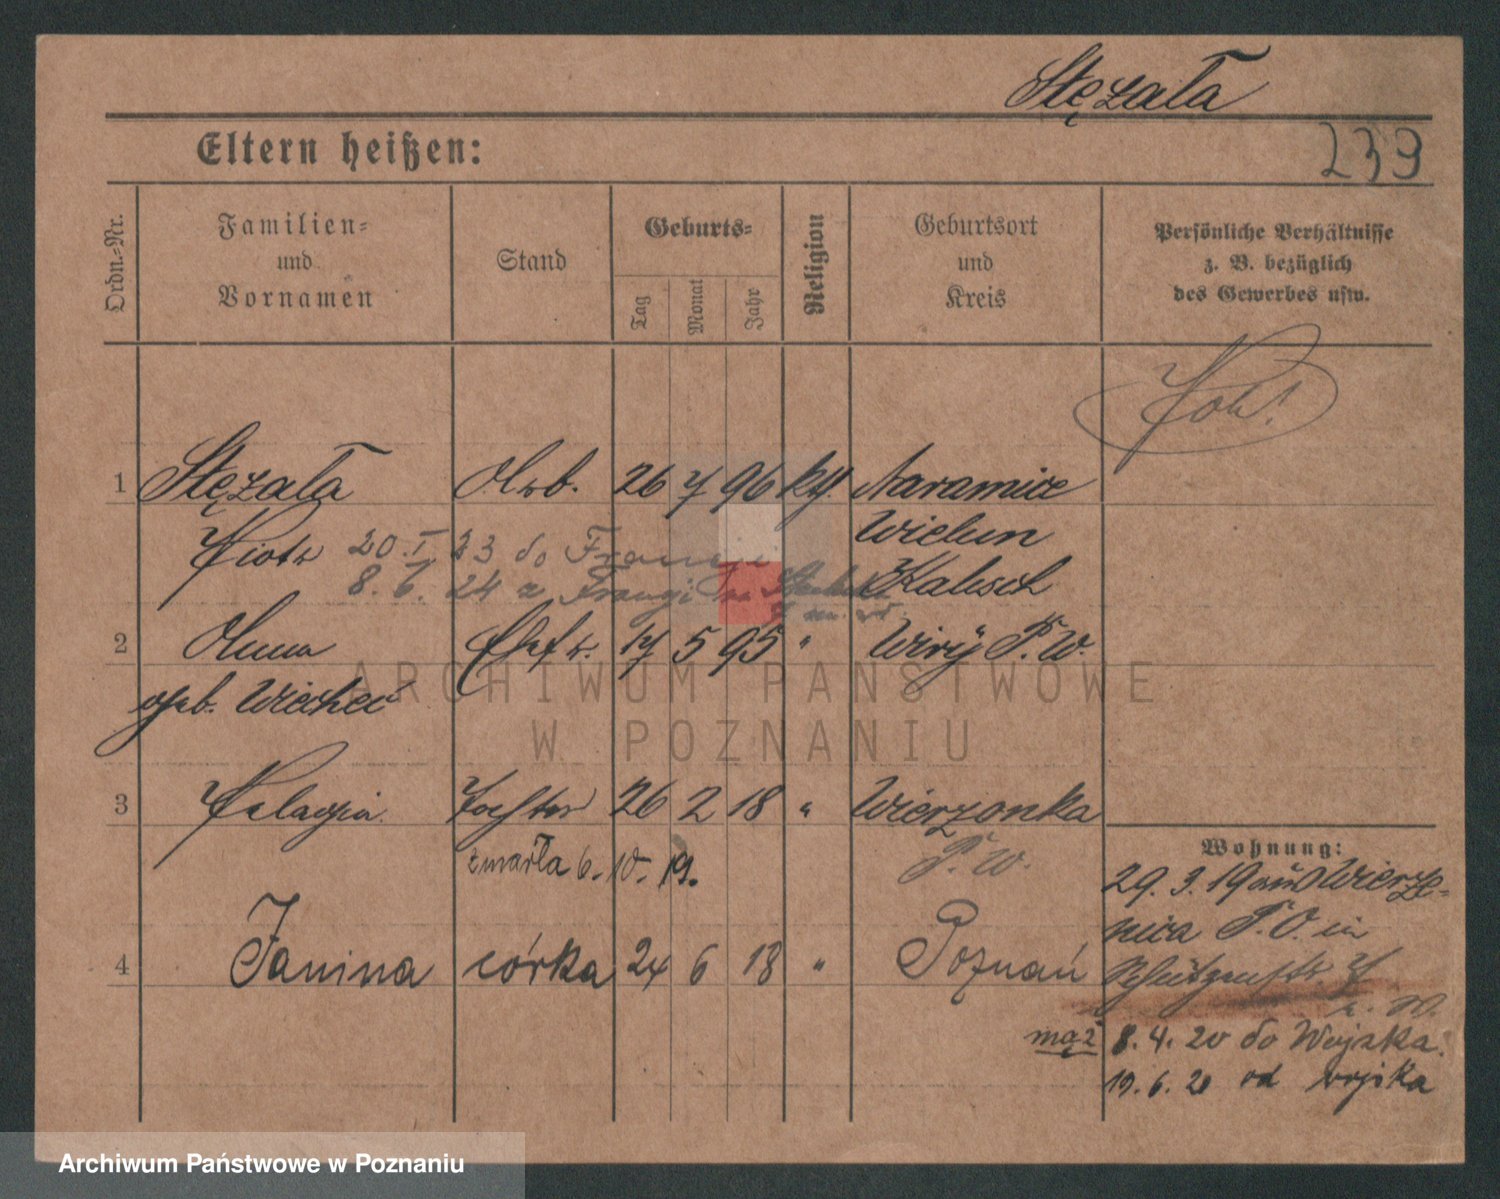 Stęzała
Eltern heißen:
239
Ordn.-Nr.
Familien- und Vornamen
Stand
Geburts-
Tag
Monat
Jahr
Religion
Geburtsort und Kreis
Persönliche Verhältnisse z. B. bezüglich des Gewerbes usw.
1 Stęzała Arb. 26 7 96 kth. Naramice
Wielun
Piotr 20. I 23 do Francji
Kalisch
8. 6. 24 z Francji
2 Anna Ehefr. 17 5 95 " Wiry P. W.
geb. Wiecheć
ARCHIWUM PAŃSTWOWE
W POZNANIU
3 Pelagia Tochter 26 2 18 " Wierzonka
P. W.
zmarła 6. 10. 19.
4 Janina córka 24 6 18 " Poznań
Wohnung:
29. 3. 19 aus Wierze-
nica P. O. in
Schützenstr. 7
mąż 8. 4. 20 do Wojska.
19. 6. 20 od wojska
Archiwum Państwowe w Poznaniu